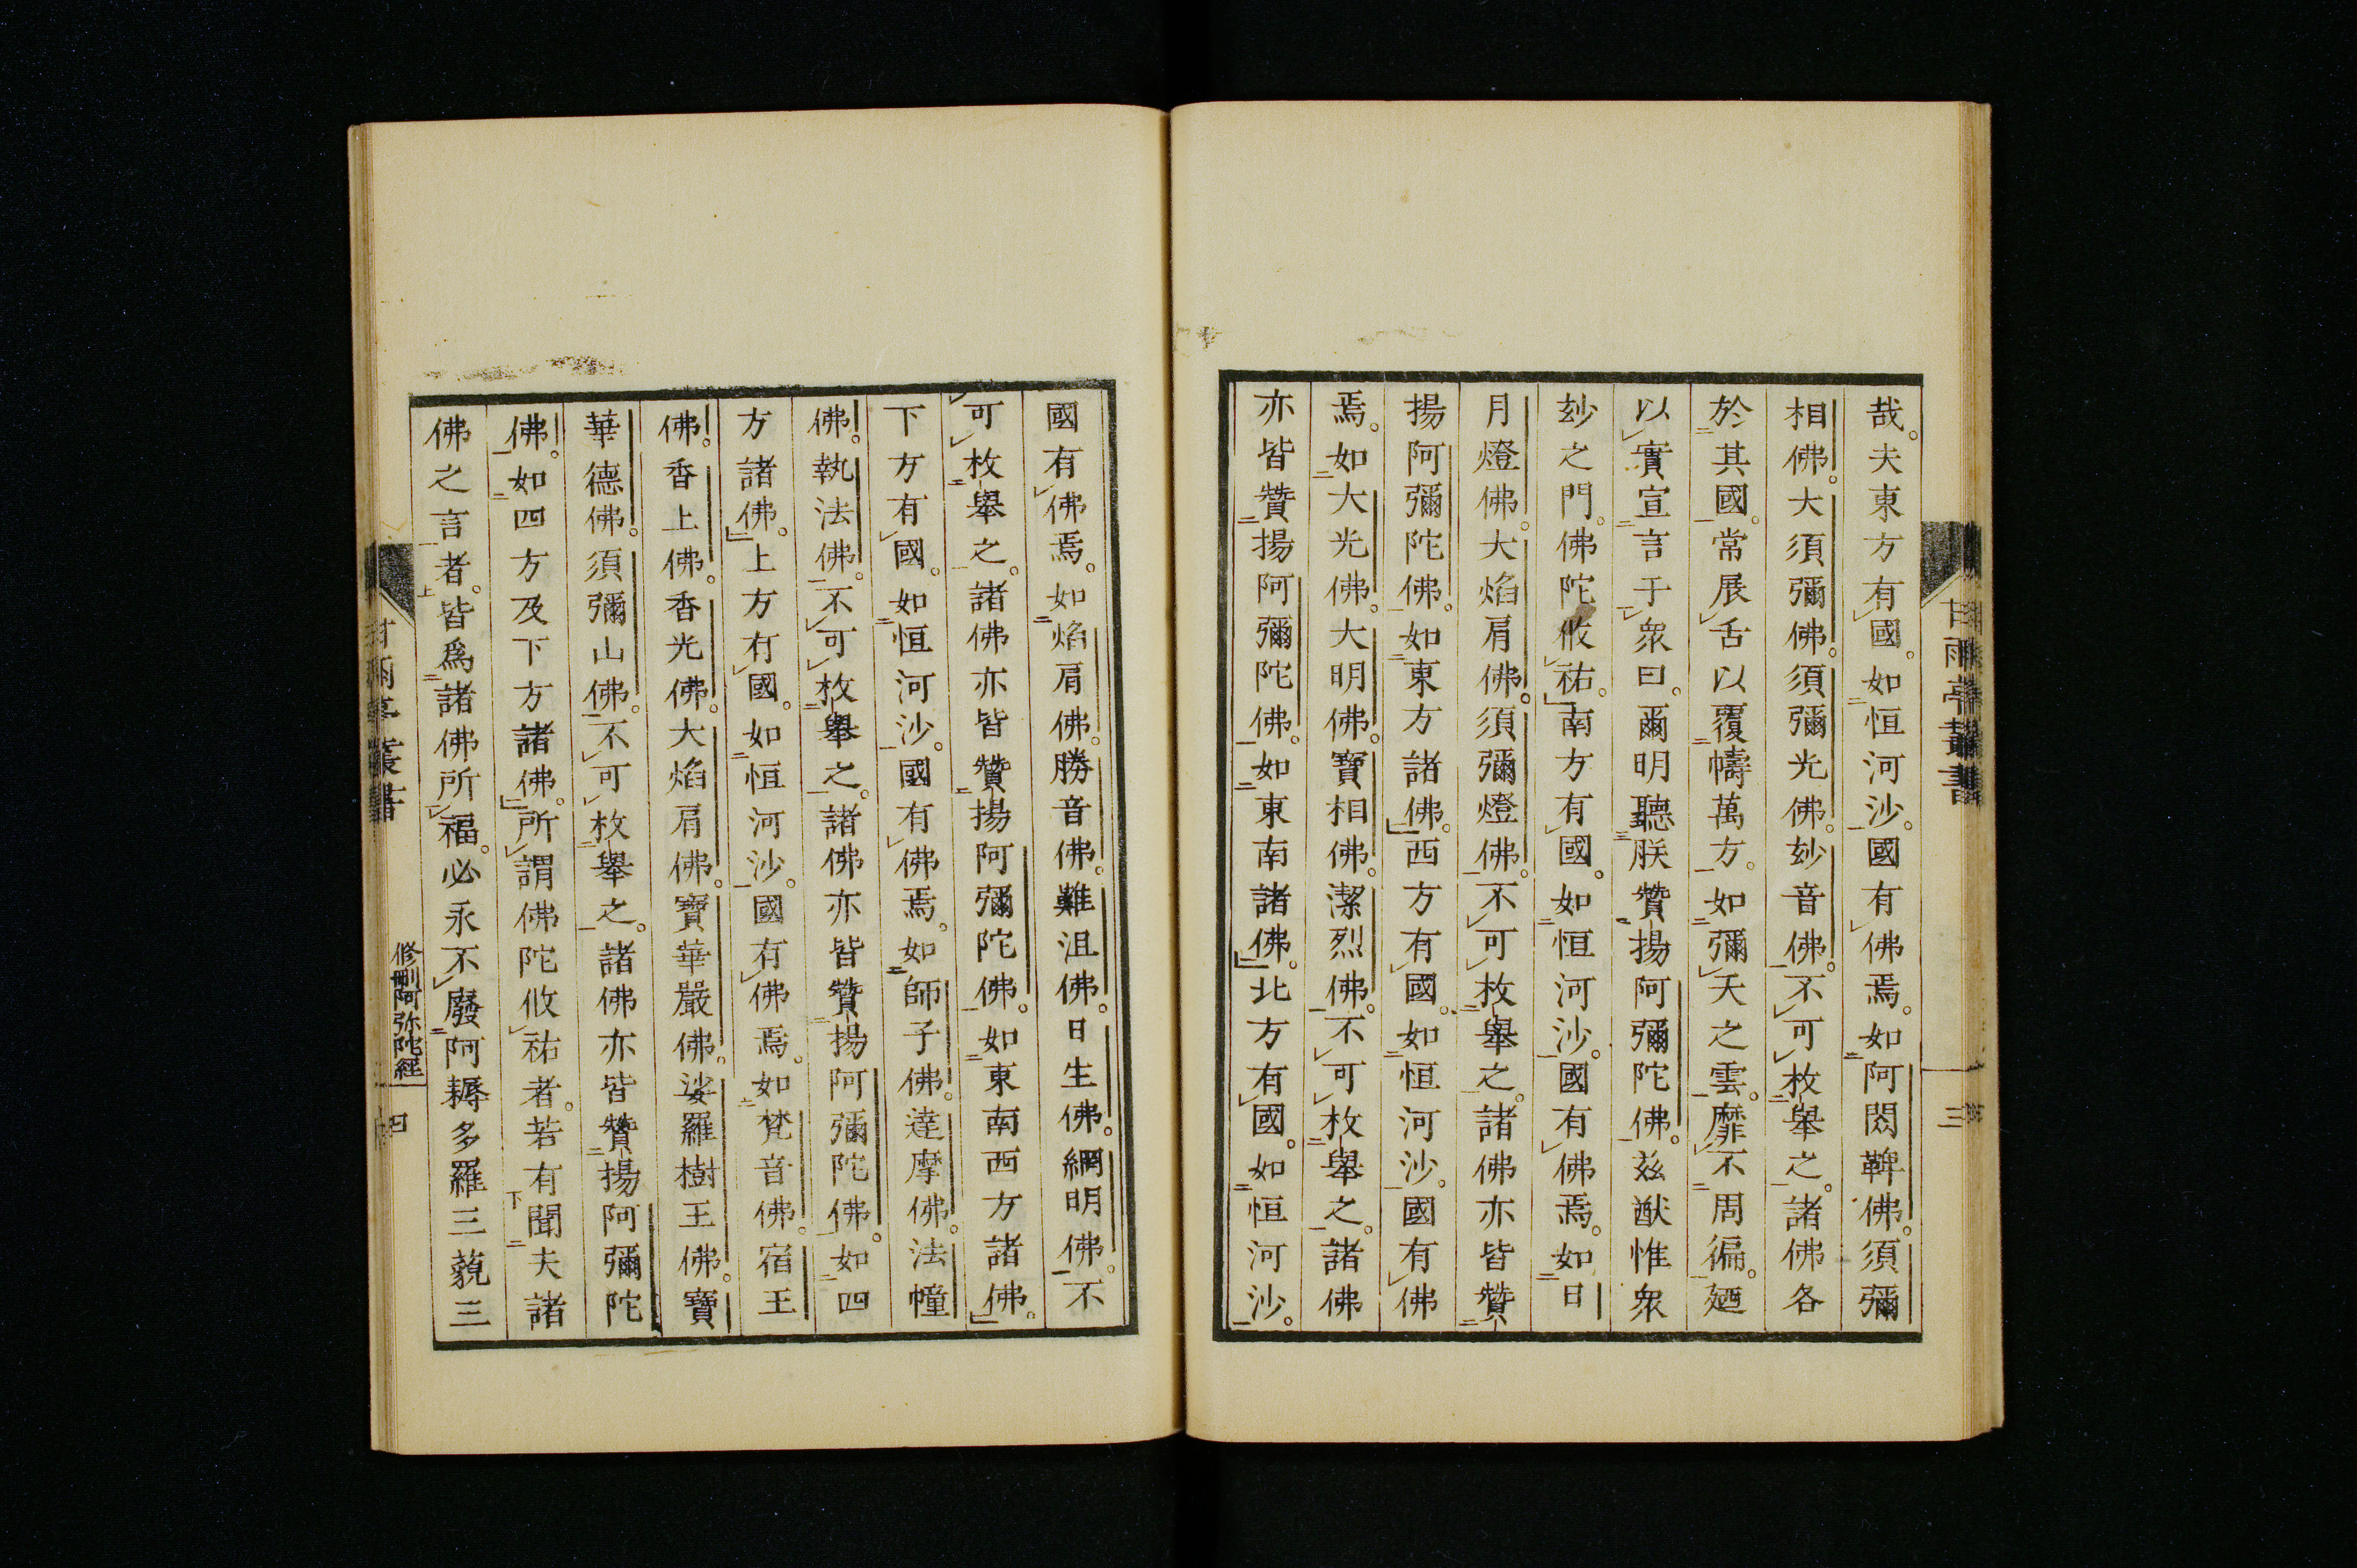 甘雨亭叢書
三
哉。夫東方有國。如恒河沙。國有佛焉。如阿閦鞞佛。須彌
相佛。大須彌佛。須彌光佛。玅音佛。不可枚舉之。諸佛各
於其國。常展舌以覆幬萬方。如彌天之雲。靡不周徧。廼
以實宣言于衆曰。爾明聽朕贊揚阿彌陀佛。茲猷惟衆
玅之門。佛陀攸祐。』南方有國。如恒河沙。國有佛焉。如日
月燈佛。大焰肩佛。須彌燈佛。不可枚舉之。諸佛亦皆贊
揚阿彌陀佛。如東方諸佛。』西方有國。如恒河沙。國有佛
焉。如大光佛。大明佛。寶相佛。潔烈佛。不可枚舉之。諸佛
亦皆贊揚阿彌陀佛。如東南諸佛。』北方有國。如恒河沙。
國有佛焉。如焰肩佛。勝音佛。難沮佛。日生佛。網明佛。不
可枚舉之。諸佛亦皆贊揚阿彌陀佛。如東南西方諸佛。』
下方有國。如恒河沙。國有佛焉。如師子佛。達摩佛。法幢
佛。執法佛。不可枚舉之。諸佛亦皆贊揚阿彌陀佛。如四
方諸佛。』上方有國。如恒河沙。國有佛焉。如梵音佛。宿王
佛。香上佛。香光佛。大焰肩佛。寶華嚴佛。娑羅樹王佛。寶
華德佛。須彌山佛。不可枚舉之。諸佛亦皆贊揚阿彌陀
佛。如四方及下方諸佛。』所謂佛陀攸祐者。若有聞夫諸
佛之言者。皆爲諸佛所福。必永不廢阿耨多羅三藐三
甘雨亭叢書
修刪阿弥陀經
四